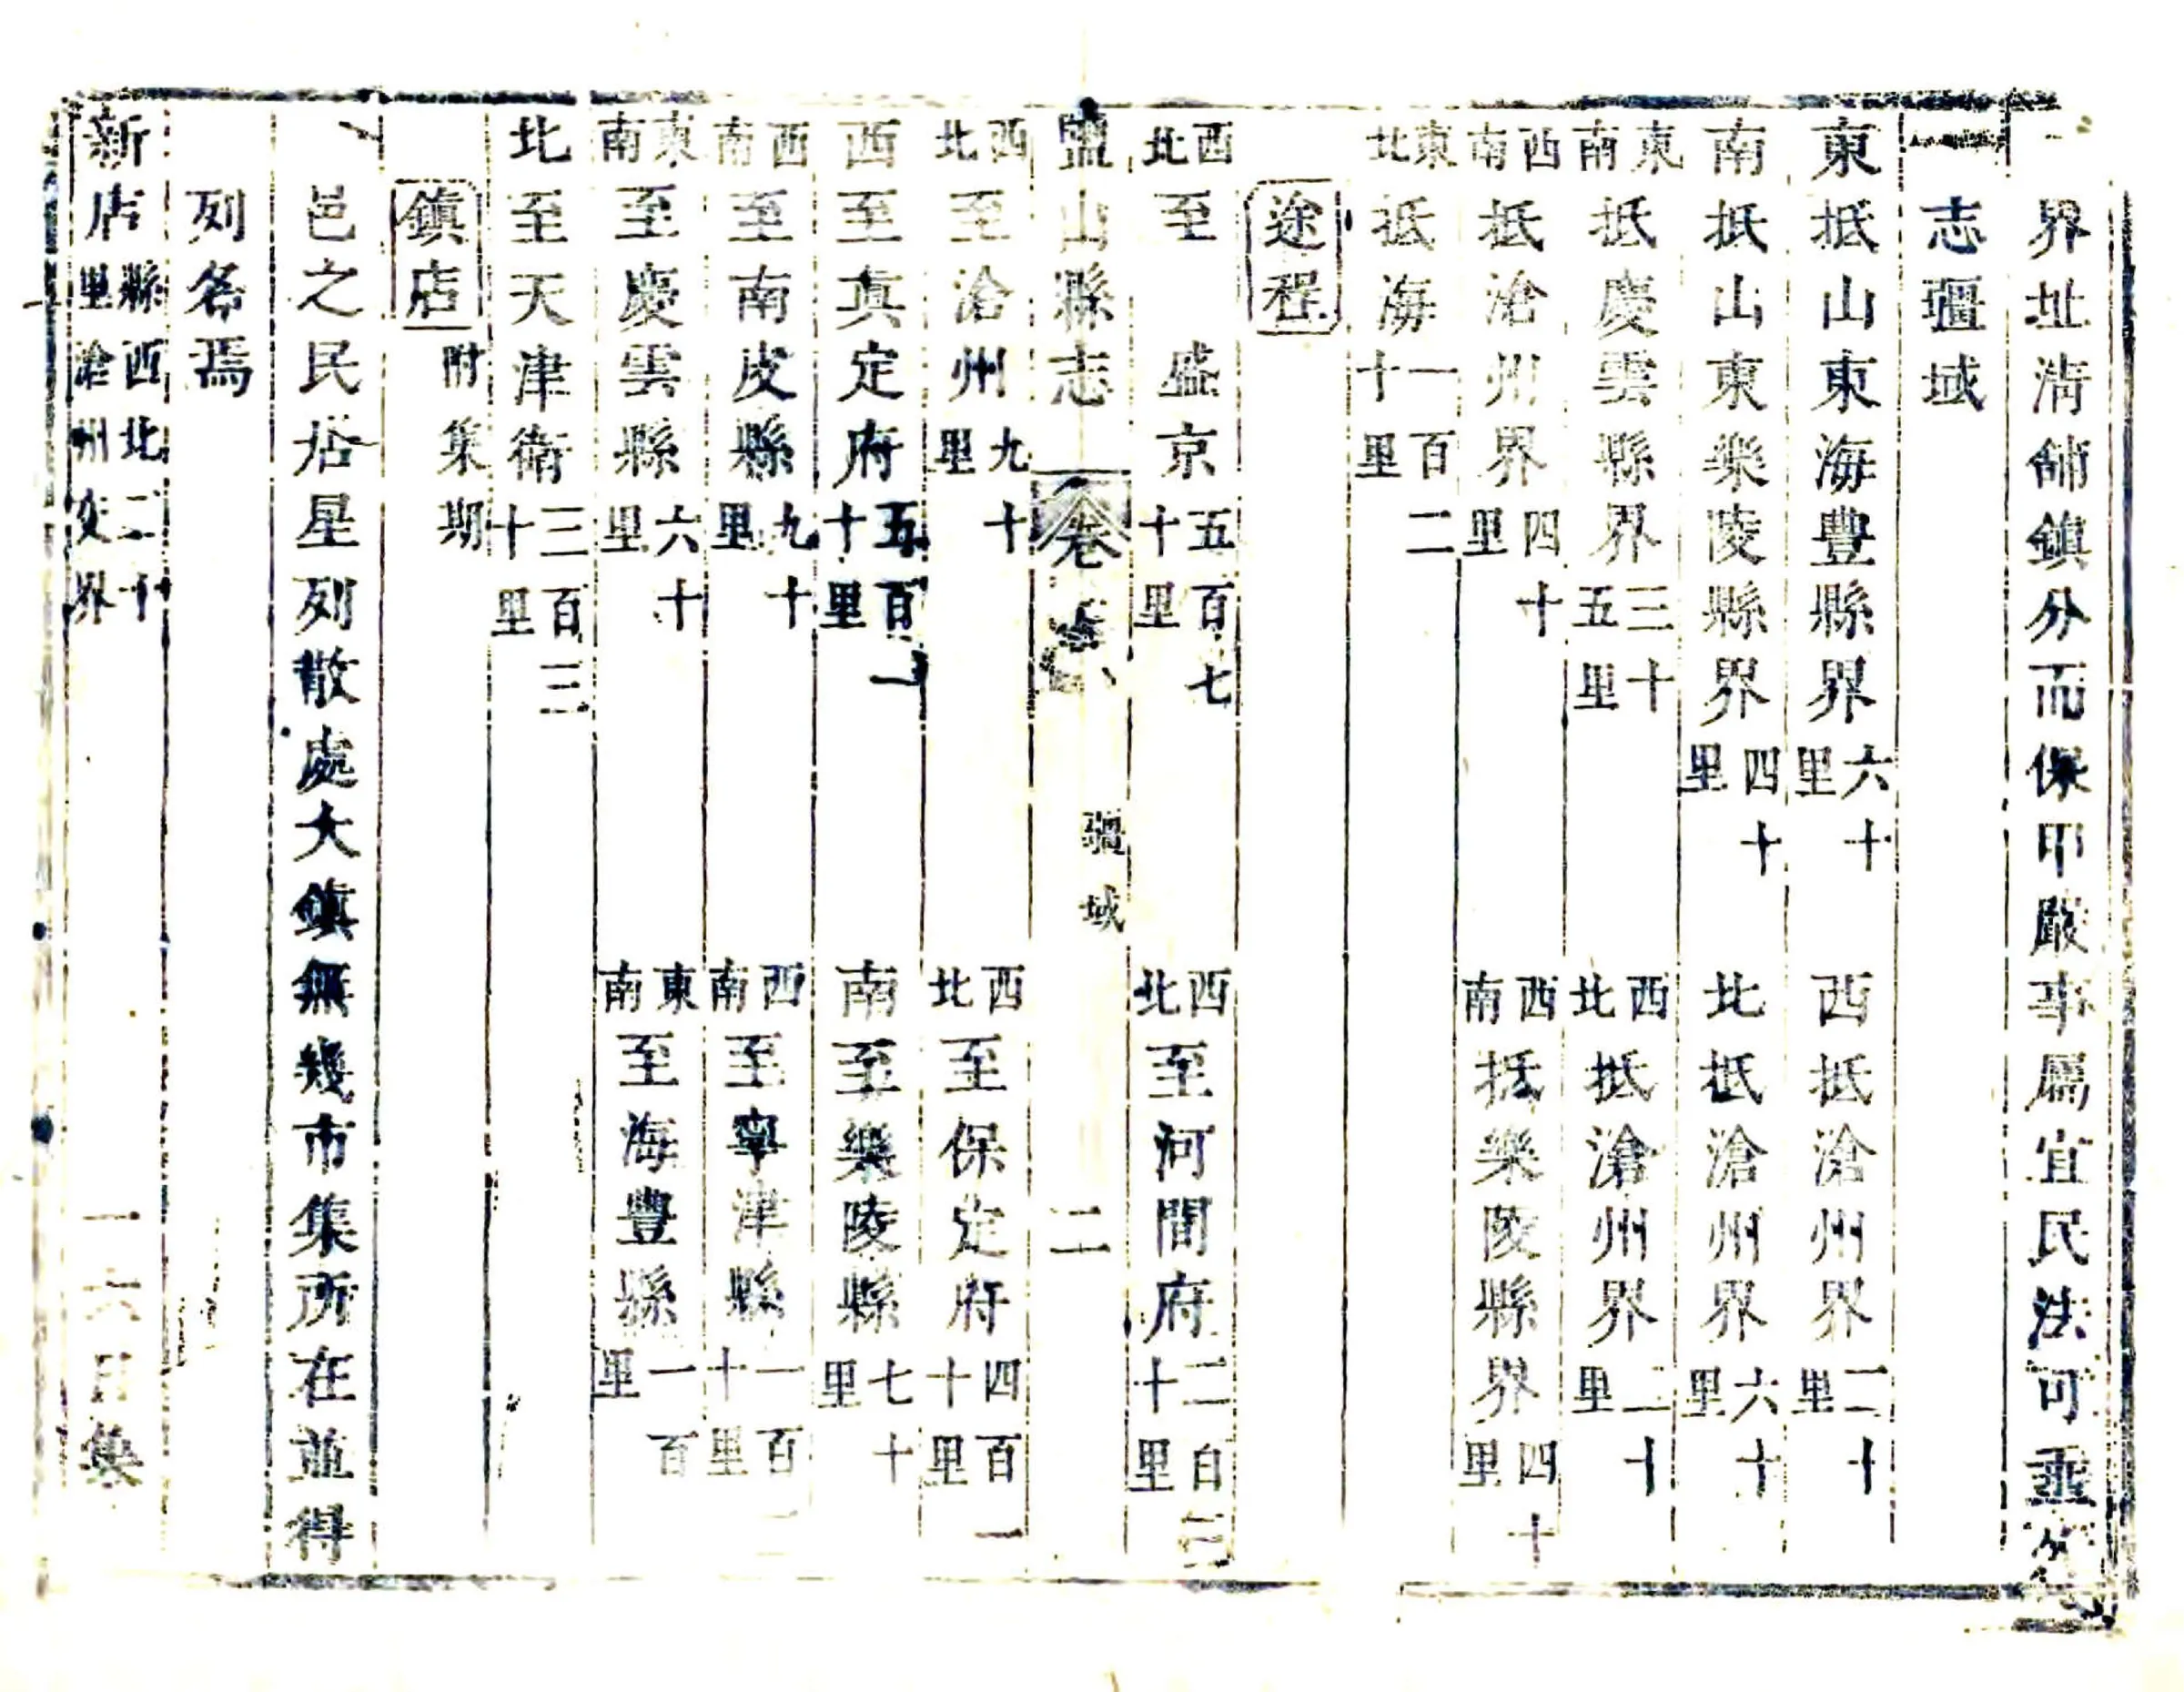 界址清舖鎮分而保甲嚴事屬宜民法可垂
志疆域
東抵山東海豐縣界六十里 西抵滄州界二十里
南抵山東樂陵縣界四十里 北抵滄州界六十里
東南抵慶雲縣界三十五里 西北抵滄州界二十里
西南抵滄州界四十里 西南抵樂陵縣界四十里
東北抵海一百二十里
途程
西北至 盛京五百七十里 西北至河間府二百二十里
鹽山縣志 卷 疆域 二
西北至滄州九十里 西北至保定府四百一十里
西至真定府五百一十里 南至樂陵縣七十里
西南至南皮縣九十里 西南至寧津縣一百一十里
東南至慶雲縣六十里 東南至海豐縣一百里
北至天津衛三百三十里
鎮店 附集期
邑之民居星列散處大鎮無幾市集所在並得
列名焉
新店縣西北二十里滄州交界 一六日集